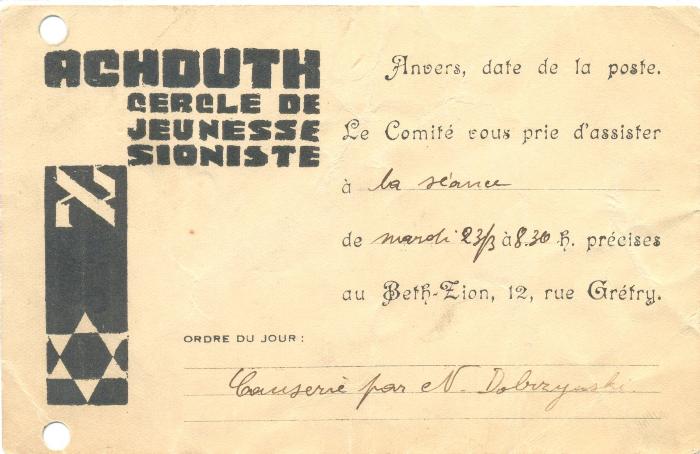 ACHOUTH
CERCLE DE
JEUNESSE
SIONISTE
א
Anvers, date de la poste.
Le Comité vous prie d'assister
à la séance
de mardi 23/3 à 8.30 h. précises
au Beth-Zion, 12, rue Grétry.
ORDRE DU JOUR :
Causerie par N. Dobrzynski.